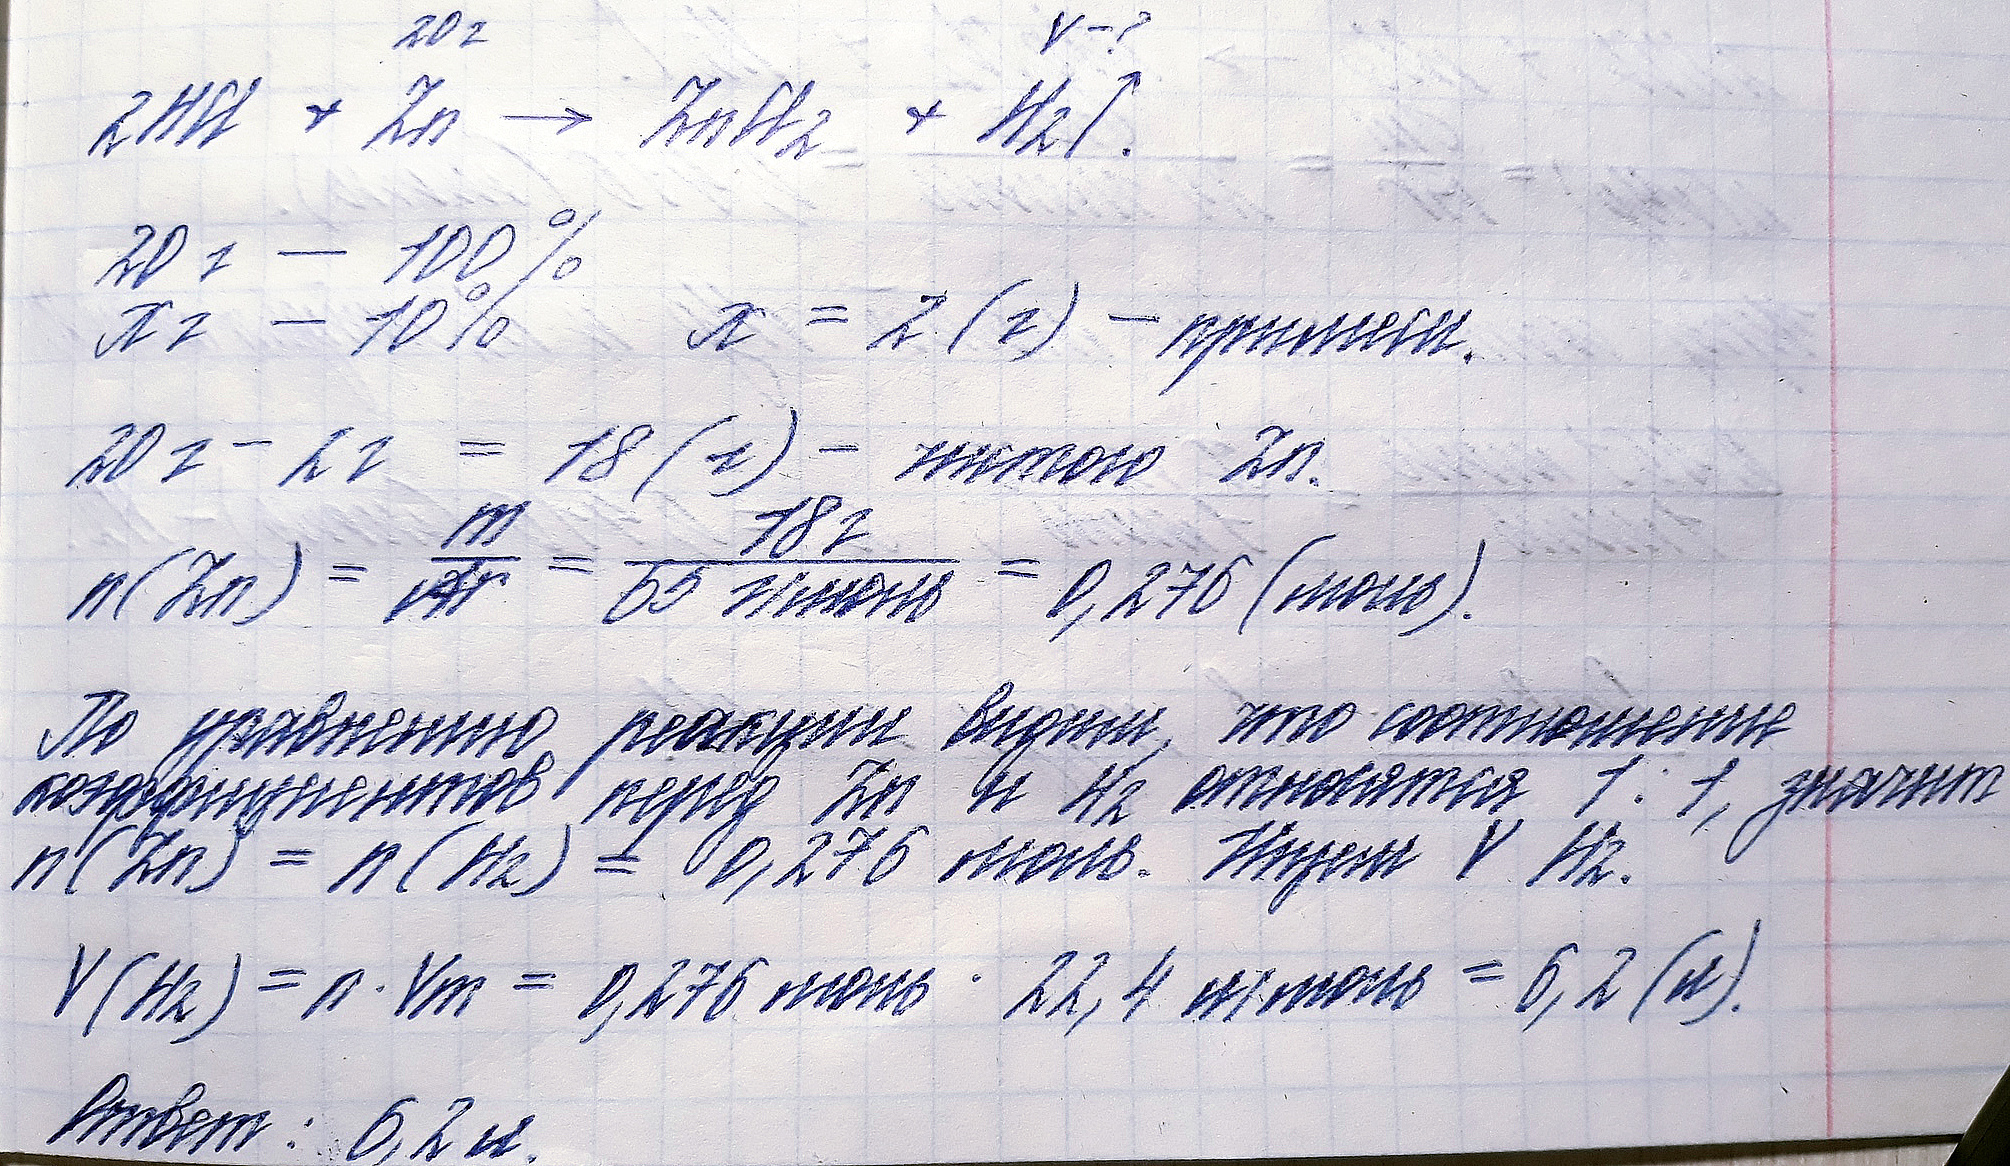 20 г V - ?
2HCl + Zn → ZnCl2 + H2↑.
20 г — 100 %
x г — 10 % x = 2 (г) — примеси.
20 г - 2 г = 18 (г) - чистого Zn.
n(Zn) = m/Ar = 18 г/65 г/моль = 0,276 (моль).
По уравнению реакции видим, что соотношение
коэффициентов перед Zn и H2 относятся 1 : 1, значит
n(Zn) = n(H2) = 0,276 моль. Ищем V H2.
V(H2) = n · Vm = 0,276 моль · 22,4 л/моль = 6,2 (л).
Ответ: 6,2 л.